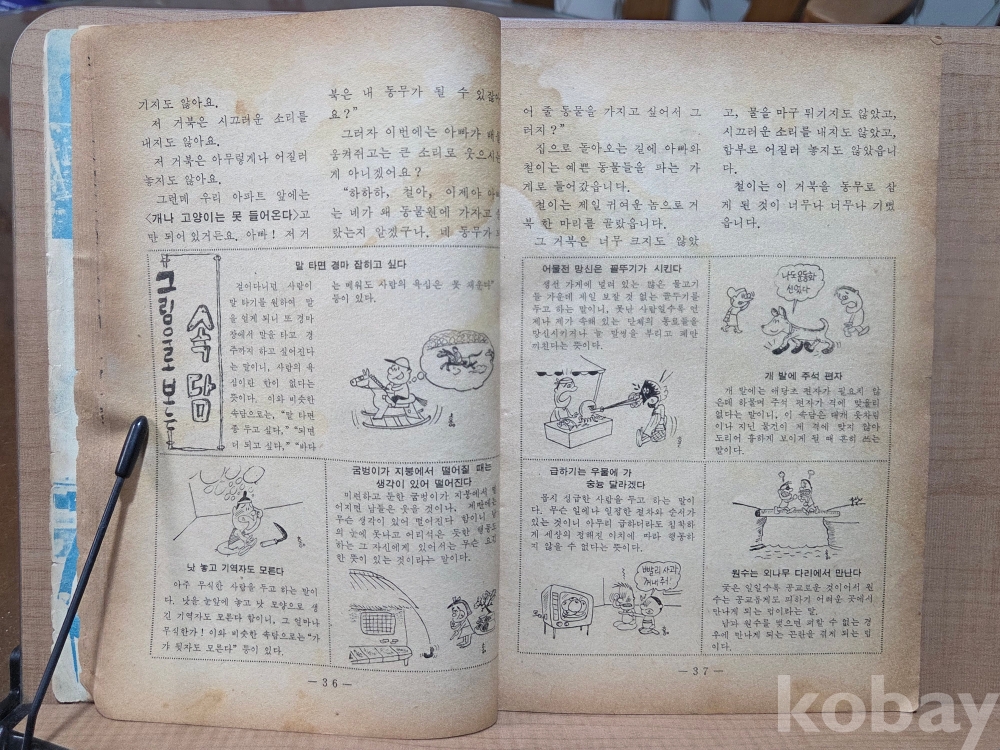 기지도 않아요.
저 거북은 시끄러운 소리를
내지도 않아요.
저 거북은 아무렇게나 어질러
놓지도 않아요.
그런데 우리 아파트 앞에는
<개나 고양이는 못 들어온다>고
만 되어 있거든요. 아빠! 저 거
북은 내 동무가 될 수 있잖아
요?”
그러자 이번에는 아빠가 배를
움켜쥐고는 큰 소리로 웃으시는
게 아니겠어요?
“하하하, 철아, 이제야
는 네가 왜 동물원에 가자고
랐는지 알겠구나. 네 동무가
그림으로 보는
속담
말 타면 경마 잡히고 싶다
걸어다니던 사람이
말 타기를 원하여 말
을 얻게 되니 또 경마
잡혀서 말을 타고 경
주까지 하고 싶어진다
는 말이니, 사람의 욕
심이란 한이 없다는
뜻이다. 이와 비슷한
속담으로는, “말 타면
종 두고 싶다,” “되면
더 되고 싶다,” “바다
는 메워도 사람의 욕심은 못 채운다”
등이 있다.
낫 놓고 기역자도 모른다
아주 무식한 사람을 두고 하는 말이
다. 낫을 눈앞에 놓고 낫 모양으로 생
긴 기역자도 모른다 함이니, 그 얼마나
무식한가! 이와 비슷한 속담으로는 “가
가 뒷자도 모른다” 등이 있다.
굼벙이가 지붕에서 떨어질 때는
생각이 있어 떨어진다
미련하고 둔한 굼벙이가 지붕에서 떨
어지면 남들은 웃을 것이나, 제딴에는
무슨 생각이 있어 떨어진다 함이니 남
의 눈에 못나고 어리석은 듯한 행동도
하는 그 자신에게 있어서는 무슨 요긴
한 뜻이 있는 것이라는 말이다.
— 3 6 —
어 줄 동물을 가지고 싶어서 그
러지?”
집으로 돌아오는 길에 아빠와
철이는 예쁜 동물들을 파는 가
게로 들어갔읍니다.
철이는 제일 귀여운 놈으로 거
북 한 마리를 골랐읍니다.
그 거북은 너무 크지도 않았
고, 물을 마구 튀기지도 않았고,
시끄러운 소리를 내지도 않았고,
함부로 어질러 놓지도 않았읍니
다.
철이는 이 거북을 동무로 삼
게 된 것이 너무나 너무나 기뻤
읍니다.
어물전 망신은 꼴뚜기가 시킨다
생선 가게에 널려 있는 많은 물고기
들 가운데 제일 보잘 것 없는 꼴뚜기를
두고 하는 말이니, 못난 사람일수록 언
제나 제가 속해 있는 단체의 동료들을
망신시키거나 늘 말썽을 부리고 폐만
끼친다는 뜻이다.
나도 운동화
신었다
개 발에 주석 편자
개 발에는 애당초 편자가 필요치 않
은데 하물며 주석 편자가 격에 맞을리
없다는 말이니, 이 속담은 대개 옷차림
이나 지닌 물건이 제 격에 맞지 않아
도리어 흉하게 보이게 될 때 흔히 쓰는
말이다.
급하기는 우물에 가
숭늉 달라겠다
몹시 성급한 사람을 두고 하는 말이
다. 무슨 일이나 일정한 절차와 순서가
있는 것이니 아무리 급하더라도 침착하
게 세상의 정해진 이치에 따라 행동하
지 않을 수 없다는 뜻이다.
빨리 사과
꺼내 줘!
원수는 외나무 다리에서 만난다
궂은 일일수록 공교로운 것이어서 원
수는 공교롭게도 피하기 어려운 곳에서
만나게 되는 법이라는 말.
남과 원수를 맺으면 피할 수 없는 경
우에 만나게 되는 곤란을 겪게 되는 법
이다.
— 3 7 —
kobay